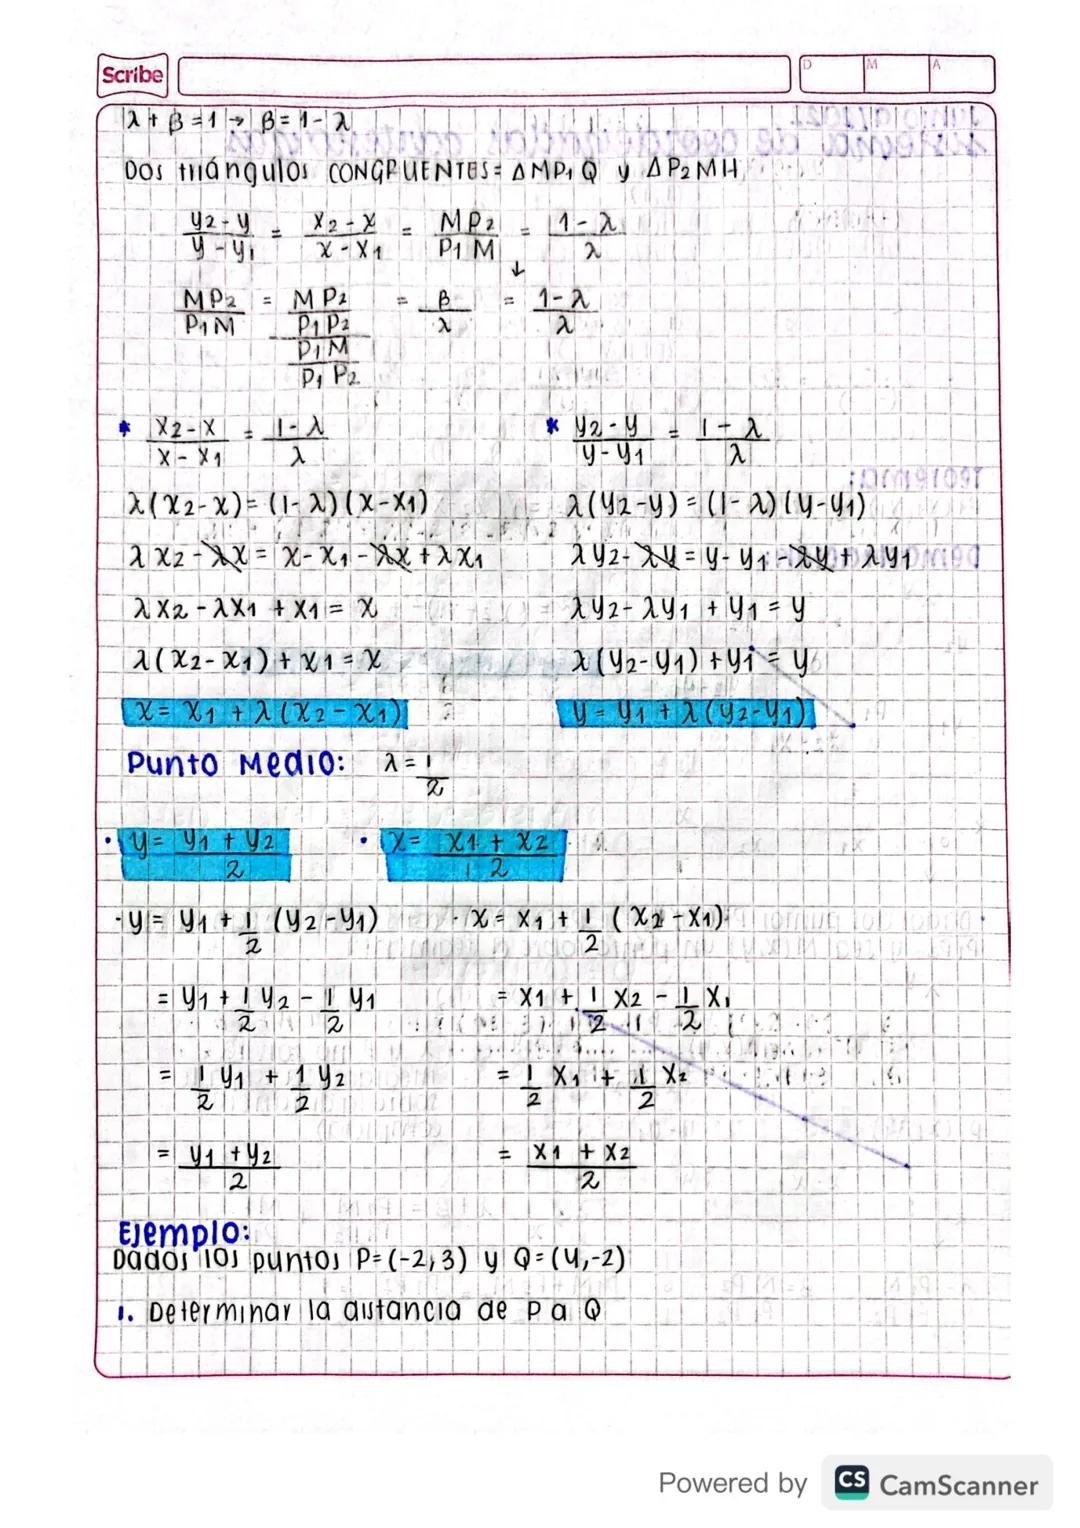 Scribe
D M A
λ + β = 1 → β = 1 - λ
Dos triángulos CONGRUENTES = ΔMP₁Q y ΔP₂MH
(y₂ - y)/(y - y₁) = (x₂ - x)/(x - x₁) = MP₂/P₁M = (1 - λ)/λ
↓
MP₂/P₁M = (MP₂/P₁P₂)/(P₁M/P₁P₂) = β/λ = (1 - λ)/λ
* (x₂ - x)/(x - x₁) = (1 - λ)/λ * (y₂ - y)/(y - y₁) = (1 - λ)/λ
λ(x₂ - x) = (1 - λ)(x - x₁) λ(y₂ - y) = (1 - λ)(y - y₁)
λx₂ - λx = x - x₁ - λx + λx₁ λy₂ - λy = y - y₁ - λy + λy₁
λx₂ - λx₁ + x₁ = x λy₂ - λy₁ + y₁ = y
λ(x₂ - x₁) + x₁ = x λ(y₂ - y₁) + y₁ = y
x = x₁ + λ(x₂ - x₁) y = y₁ + λ(y₂ - y₁)
Punto Medio: λ = 1/2
• y = (y₁ + y₂)/2 • x = (x₁ + x₂)/2
· y = y₁ + 1/2 (y₂ - y₁) · x = x₁ + 1/2 (x₂ - x₁)
= y₁ + 1/2 y₂ - 1/2 y₁ = x₁ + 1/2 x₂ - 1/2 x₁
= 1/2 y₁ + 1/2 y₂ = 1/2 x₁ + 1/2 x₂
= (y₁ + y₂)/2 = (x₁ + x₂)/2
Ejemplo:
Dados los puntos P=(-2,3) y Q=(4,-2)
1. Determinar la distancia de P a Q
Powered by CS CamScanner